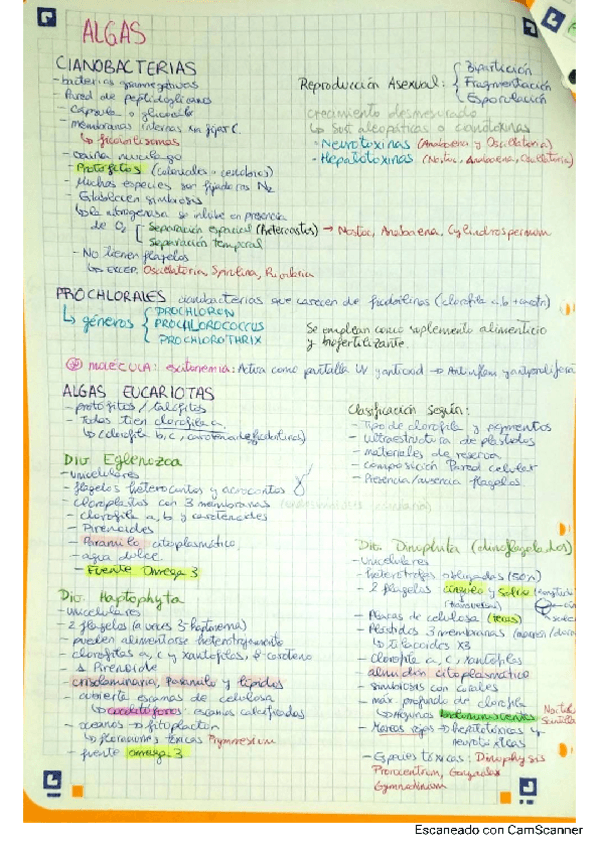 ALGAS
CIANOBACTERIAS
- bacterias gramnegativas
- Pared de peptidoglicano
- Capsula o glicocalix
- membranas internas
↳ ficobilisomas
- Protofitos (coloniales o cenobios)
- Muchas especies son fijadoras N₂
- Establecen simbiosis
↳ la nitrogenasa se inhibe en presencia
de O₂ - Separación espacial (Heterocistes) → Nostoc, Anabaena, Cylindrospermum
Separación temporal
- No tienen flagelos
↳ EXCEP. Oscillatoria, Spirulina, Rivularia
Reproducción Asexual: Bipartición
Fragmentación
Esporulación
crecimiento desmesurado
↳ Son aleopáticas o cianotoxinas
• Neurotoxinas (Anabaena y Oscillatoria)
• Hepatotoxinas (Nostoc, Anabaena, Oscillatoria)
PROCHLORALES cianobacterias que carecen de ficobilinas (clorofila a, b + )
↳ géneros PROCHLORON
PROCHLOROCOCCUS
PROCHLOROTHRIX
Se emplean como suplemento alimenticio
y biofertilizante.
MOLÉCULA: escitonemia: Actúa como pantalla UV y antioxid →
ALGAS EUCARIOTAS
- protofitos / talofitos
- Todas tien clorofila a
Clasificación según:
- Tipo de clorofila y pigmentos
- Ultraestructura de plastidos
- materiales de reserva
- composición Pared celular
- Presencia/ausencia flagelos.
Div. Eglenozoa
- unicelulares
- flagelos heterocontos y acrocontos
- cloroplastos con 3 membranas
- clorofila a, b y carotenoides
- Pirenoides
- Paramilo citoplasmático
- agua dulce
- Fuente Omega 3
Div. Haptophyta
- unicelulares
- 2 flagelos (a veces 3 haptonema)
- pueden alimentarse heterotrofamente
- clorofilas a, c y xantofilas, β-caroteno
- 1 Pirenoide
- crisolaminarina, Paramilo y lípidos
- cubierta escamas de celulosa
↳ cocolitóforos: escamas calcificadas
- oceanos → fitoplacton
↳ floraciones tóxicas Prymnesium
- fuente omega 3
Div. Dinophita (dinoflagelados)
- unicelulares
- heterótrofas obligadas (50%)
- 2 flagelos cíngulo y sulco
(transversal)
- Placas de celulosa (tecas)
- Plástidos 3 membranas
↳ tilacoides x3
- clorofila a, c, xantofilas
- almidón citoplasmático
- simbiosis con corales
↳ Algunas bioluminiscentes
- Mareas rojas → hepatotóxicas y
neurotóxicas
- Especies tóxicas: Dinophysis
Prorocentrum, Gonyaulax
Gymnodinium
Escaneado con CamScanner